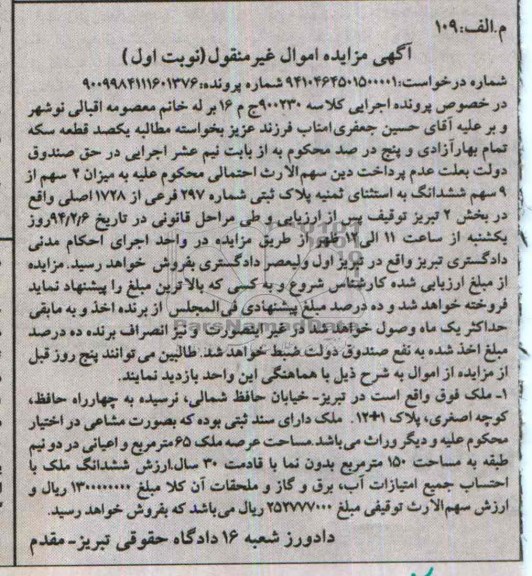 م.الف:۱۰۹
آگهی مزایده اموال غیرمنقول (نوبت اول)
شماره درخواست:۹۴۱۰۴۶۴۵۰۱۵۰۰۰۰۱ شماره پرونده:۹۰۰۹۹۸۴۱۱۱۶۰۱۳۷۶
در خصوص پرونده اجرایی کلاسه ۹۰۰۲۳۰ج م ۱۶ بر له خانم معصومه اقبالی نوشهر
و بر علیه آقای حسین جعفری امناب فرزند عزیز بخواسته مطالبه یکصد قطعه سکه
تمام بهارآزادی و پنج در صد محکوم به از بابت نیم عشر اجرایی در حق صندوق
دولت بعلت عدم پرداخت دین سهم الارث احتمالی محکوم علیه به میزان ۲ سهم از
۹ سهم ششدانگ به استثنای ثمنیه پلاک ثبتی شماره ۲۹۷ فرعی از ۱۷۲۸ اصلی واقع
در بخش ۲ تبریز توقیف پس از ارزیابی و طی مراحل قانونی در تاریخ ۹۴/۲/۶ روز
یکشنبه از ساعت ۱۱ الی ۱۲ ظهر از طریق مزایده در واحد اجرای احکام مدنی
دادگستری تبریز واقع در تبریز اول ولیعصر دادگستری بفروش خواهد رسید. مزایده
از مبلغ ارزیابی شده کارشناس شروع و به کسی که بالاترین مبلغ را پیشنهاد نماید
فروخته خواهد شد و ده درصد مبلغ پیشنهادی فی المجلس از برنده اخذ و به مابقی
حداکثر یک ماه وصول خواهد شد در غیر اینصورت و نیز انصراف برنده ده درصد
مبلغ اخذ شده به نفع صندوق دولت ضبط خواهد شد. طالبین می توانند پنج روز قبل
از مزایده از اموال به شرح ذیل با هماهنگی این واحد بازدید نمایند.
۱- ملک فوق واقع است در تبریز- خیابان حافظ شمالی، نرسیده به چهارراه حافظ،
کوچه اصغری، پلاک ۱+۱۲ . ملک دارای سند ثبتی بوده که بصورت مشاعی در اختیار
محکوم علیه و دیگر وراث می باشد. مساحت عرصه ملک ۶۵ مترمربع و اعیانی در دو نیم
طبقه به مساحت ۱۵۰ مترمربع بدون نما با قادمت ۳۰ سال. ارزش ششدانگ ملک با
احتساب جمیع امتیازات آب، برق و گاز و ملحقات آن کلا مبلغ ۱۳۰۰۰۰۰۰۰۰ ریال و
ارزش سهم الارث توقیفی مبلغ ۲۵۲۷۷۷۰۰۰ ریال می باشد که بفروش خواهد رسید.
دادورز شعبه ۱۶ دادگاه حقوقی تبریز- مقدم